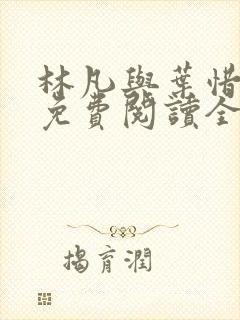 林凡與葉惜
免費閱讀全
揭育潤